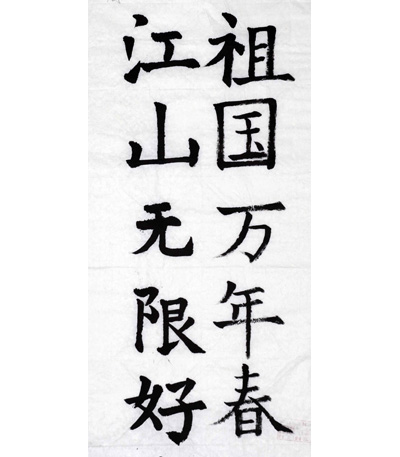 祖国万年春
江山无限好